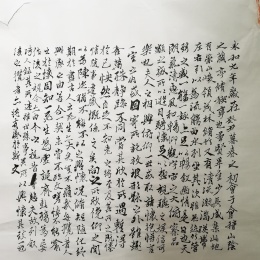 永和九年歲在癸丑暮春之初會于會稽山陰
之蘭亭脩禊事也羣賢畢至少長咸集此地
有崇山峻領茂林脩竹又有清流激湍映帶
左右引以為流觴曲水列坐其次雖無絲竹管弦之
盛一觴一詠亦足以暢敘幽情是日也天
朗氣清惠風和暢仰觀宇宙之大俯察品
類之盛所以遊目騁懷足以極視聽之娛信可
樂也夫人之相與俯仰一世或取諸懷抱悟言
一室之內或因寄所託放浪形骸之外雖趣
舍萬殊靜躁不同當其欣於所遇暫得
於己快然自足不知老之將至及其所之既
惓情隨事遷感慨係之矣向之所欣俛仰之間
以為陳迹猶不能不以之興懷況脩短隨化終
期於盡古人云死生亦大矣豈不痛哉每攬昔人
興感之由若合一契未嘗不臨文嗟悼不能喻
之於懷固知一死生為虛誕齊彭殤為妄作後
之視今亦由今之視昔悲夫故列
敘時人錄其所述雖世殊事異所以興懷其致一
也後之攬者亦將有感於斯文